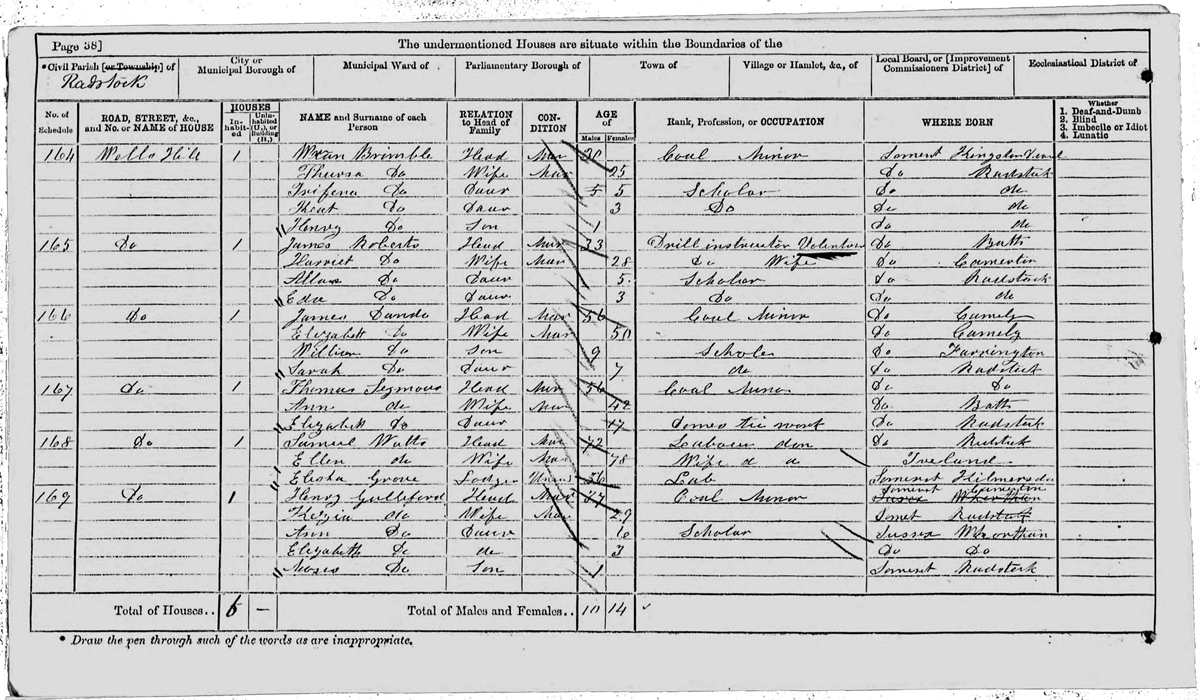 Page 38]
The undermentioned Houses are situate within the Boundaries of the
*Civil Parish [or Township] of
City or Municipal Borough of
Municipal Ward of
Parliamentary Borough of
Town of
Village or Hamlet, &c., of
Local Board, or [Improvement Commissioners District] of
Ecclesiastical District of
Radstock
No. of Schedule
ROAD, STREET, &c., and No. or NAME of HOUSE
HOUSES
Inhabited
Uninhabited (U.), or Building (B.)
NAME and Surname of each Person
RELATION to Head of Family
CONDITION
AGE of
Males
Females
Rank, Profession, or OCCUPATION
WHERE BORN
Whether
1. Deaf-and-Dumb
2. Blind
3. Imbecile or Idiot
4. Lunatic
164 Wells Hill 1 Brimble Head Mar 30 Coal Minor Somerset Kingston
Do Wife Mar 25 Do Radstock
Trifena Do Daur 5 5 Scholar Do do
Do Daur 3 Do Do do
Henry Do Son 1 Do do
165 Do 1 James Roberts Head Mar 33 Drill instructer Do Bath
Harriet Do Wife Mar 28 Do Wife Do Camerton
Do Daur 5 Scholar Do Radstock
Eda Do Daur 3 Do Do do
166 Do 1 James Dando Head Mar 56 Coal Minor Do Camely
Elizabeth Do Wife Mar 50 Do Camely
William Do Son 9 Scholar Do Farrington
Sarah Do Daur 7 do Do Radstock
167 Do 1 Thomas Seymour Head Mar 56 Coal Minor Do Do
Ann do Wife Mar 42 Do Bath
Elizabeth Do Daur 17 Domestic work Do Radstock
168 Do 1 Samuel Watts Head Mar 72 Do Radstock
Ellen do Wife Mar 78 Wife d d Ireland
Elisha Grove Lodger Unmar 56 Lab Somerset Kilmersdon
169 Do 1 Henry Gulliford Head Mar 37 Coal Minor Somerset
Kezia do Wife Mar 29 Somet Radstock
Ann Do Daur 6 Scholar Sussex
Elizabeth Do do 3 Do Do
Moses Do Son 1 Somerset Radstock
Total of Houses.. 6 —
Total of Males and Females.. 10 14
* Draw the pen through such of the words as are inappropriate.